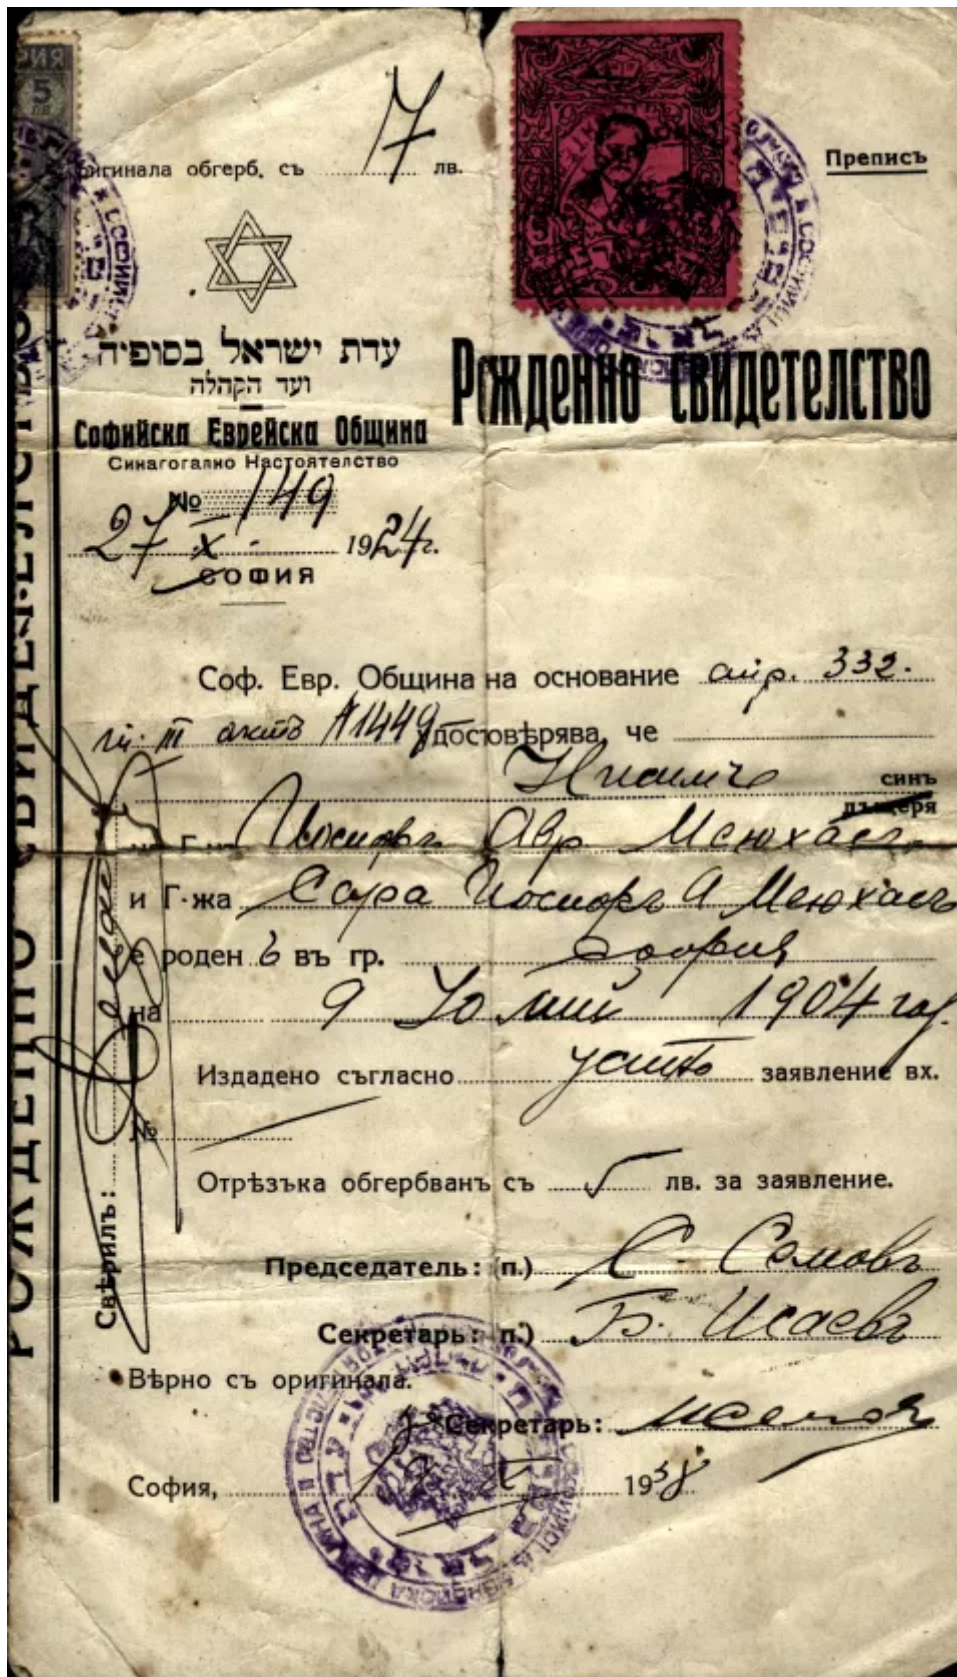 РИЯ
5
ЛВ
оригинала обгерб. съ 7 лв.
Преписъ
עדת ישראל בסופיה
ועד הקהלה
Софийска Еврейска Община
Синагогално Настоятелство
№ 149
27 X 1924 г.
СОФИЯ
Рожденно свидетелство
Соф. Евр. Община на основание 332.
III актъ №1449 удостовѣрява, че
синъ
дъщеря
Авр Меюхасъ
и Г-жа Сара Йосифъ А Меюхасъ
е роден въ гр. София
на 9 Юлий 1904 год.
Издадено съгласно устно заявление вх.
№
Отрѣзъка обгербванъ съ 5 лв. за заявление.
Председатель: (п.) С. Семовъ
Секретарь: п.) Б. Исаевъ
Вѣрно съ оригинала.
Секретарь:
София, 1938
Свѣрилъ:
РОЖДЕННО СВИДЕТЕЛСТВО